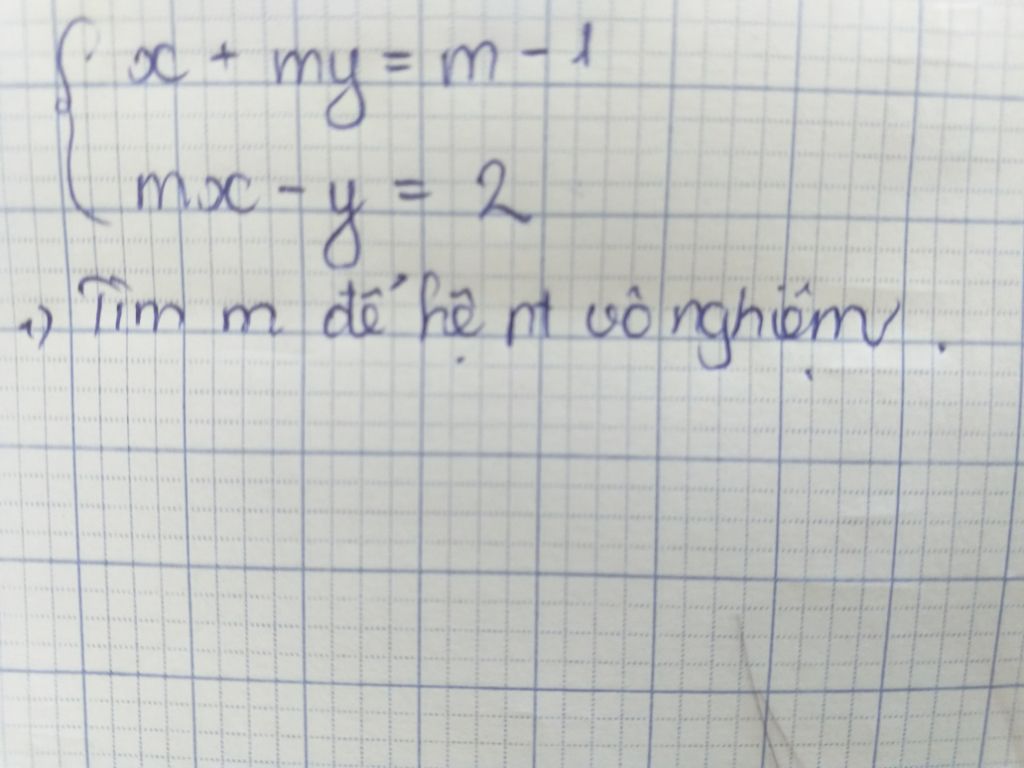 { x + my = m - 1
mx - y = 2
1) Tìm m để hệ pt vô nghiệm.